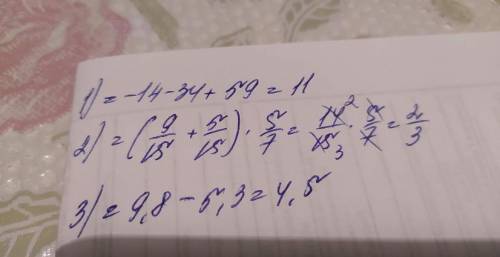 1) = -14 - 34 + 59 = 11
2) = (9/15 + 5/15) · 5/7 = 14² / 15₃ · 5/7 = 2/3
3) = 9,8 - 5,3 = 4,5